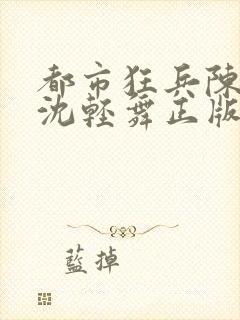 都市狂兵陳
沈輕舞正版
藍掉